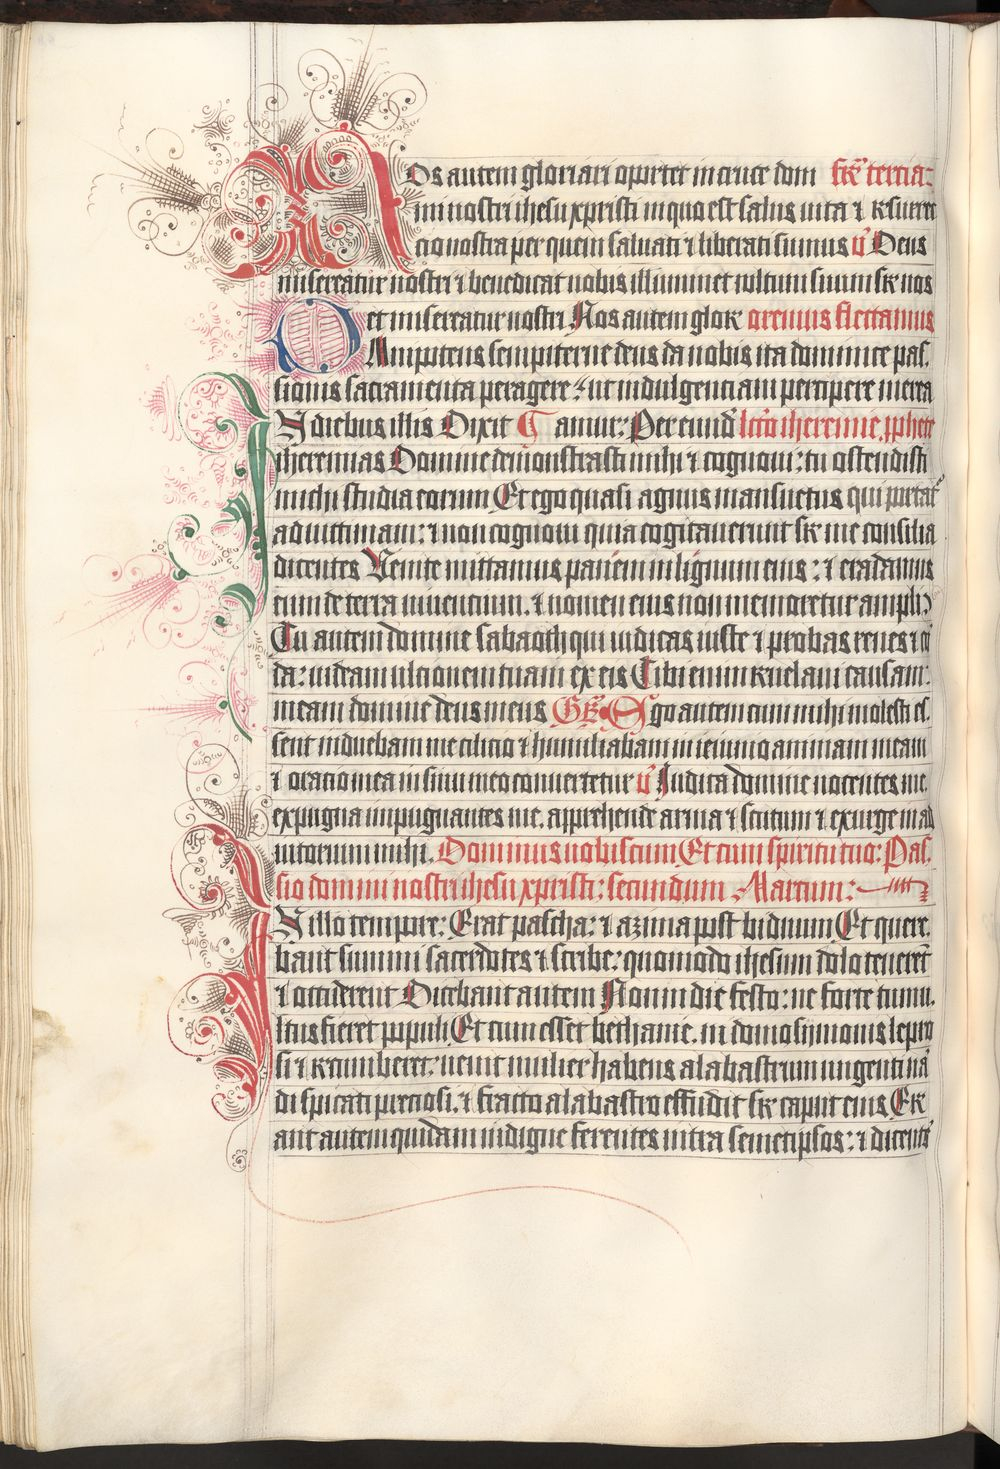 Nos autem gloriari oportet in cruce dom feria tertia:
mini nostri ihesu xpristi in quo est salus uita ⁊ resurrec
cio nostra per quem saluati ⁊ liberati sumus v̄ Deus
misereatur nostri ⁊ benedicat nobis illuminet vultum suum sr̄ nos
et misereatur nostri Nos autem glor̄ oremus flectamus
Omnipotens sempiterne deus da nobis ita dominice pas,
sionis sacramenta peragere: ut indulgenciam percipere merea
In diebus illis Dixit mur: Per eund̄ lc̄o iheremie pphete
iheremias Domine demonstrasti mihi ⁊ cognoui: tu ostendisti
michi studia eorum Et ego quasi agnus mansuetus qui portat̄
ad uictimam: ⁊ non cognoui quia cogitauerunt sr̄ me consilia
dicentes Venite mittamus panem in lignum eius: ⁊ eradamus
eum de terra uiuencium. ⁊ nomen eius non memoretur ampli9
Tu autem domine sabaoth qui iudicas iuste ⁊ probas renes ⁊ cor
da: uideam ulcionem tuam ex eis Tibi enim reuelaui causam:
meam domine deus meus Gr̄ Ego autem cum mihi molesti es,
sent induebam me cilicio ⁊ humiliabam in ieiunio animam meam
⁊ oratio mea in sinu meo conuertetur v̄ Iudica domine nocentes me.
expugna impugnantes me. apprehende arma ⁊ scutum ⁊ exurge in ad
iutorium mihi. Dominus uobiscum Et cum spiritu tuo: Pas,
sio domini nostri ihesu xpristi: secundum Marcum:
In illo tempore: Erat pascha: ⁊ azima post biduum Et quere.
bant summi sacerdotes ⁊ scribe: quomodo ihesum dolo tenerent̄
⁊ occiderent Dicebant autem Non in die festo: ne forte tumu,
ltus fieret populi Et cum esset bethanie. in domo symonis lepro
si ⁊ recumberet: uenit mulier habens alabastrum ungenti nar
di spicati preciosi. ⁊ fracto alabastro effudit sr̄ caput eius Er
ant autem quidam indigne ferentes intra semetipsos: ⁊ dicentes